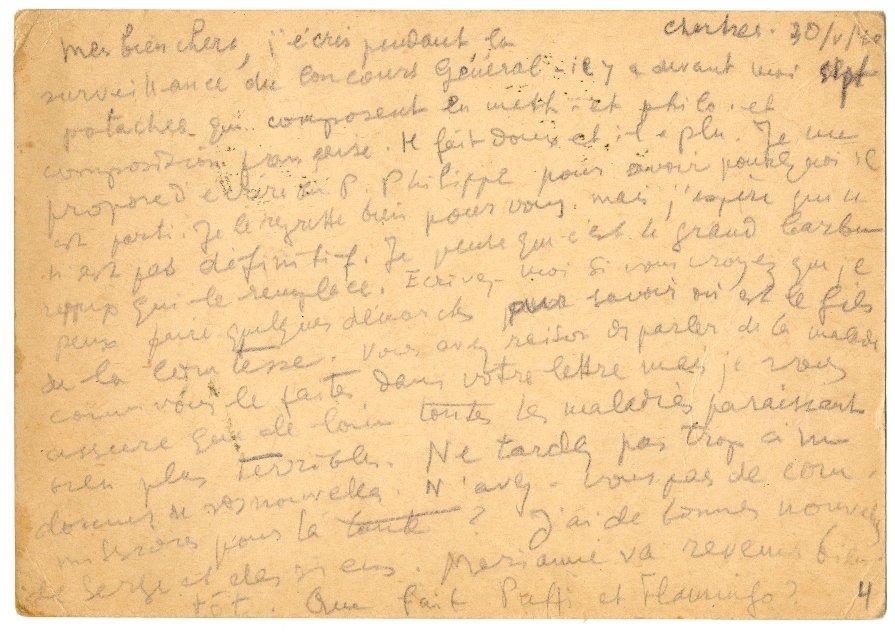 Chartres. 30/V/40
Mes bien chers, j'écris pendant la
surveillance du Concours Général - il y a devant moi sept
potaches qui composent en math - et philo - et
composition française. Il fait doux et il a plu. Je me
propose d'écrire au P. Philippe pour savoir pourquoi il
est parti. Je le regrette bien pour vous. mais j'espère que ce
n'est pas définitif. Je pense que c'est le grand barbu
qui le remplace. Ecrivez-moi si vous croyez que je
peux faire quelques démarches pour savoir où est le fils
de la Comtesse. Vous avez raison de parler de la maladie
comme vous le faites dans votre lettre mais je vous
assure que de loin toutes les maladies paraissent
bien plus terribles. Ne tardez pas trop à me
donner de vos nouvelles. N'avez-vous pas de com-
missions pour la tante ? J'ai de bonnes nouvelles
de Serge et des siens. Marianne va revenir bien-
tôt. Que fait Puffi et Flamingo ?
4